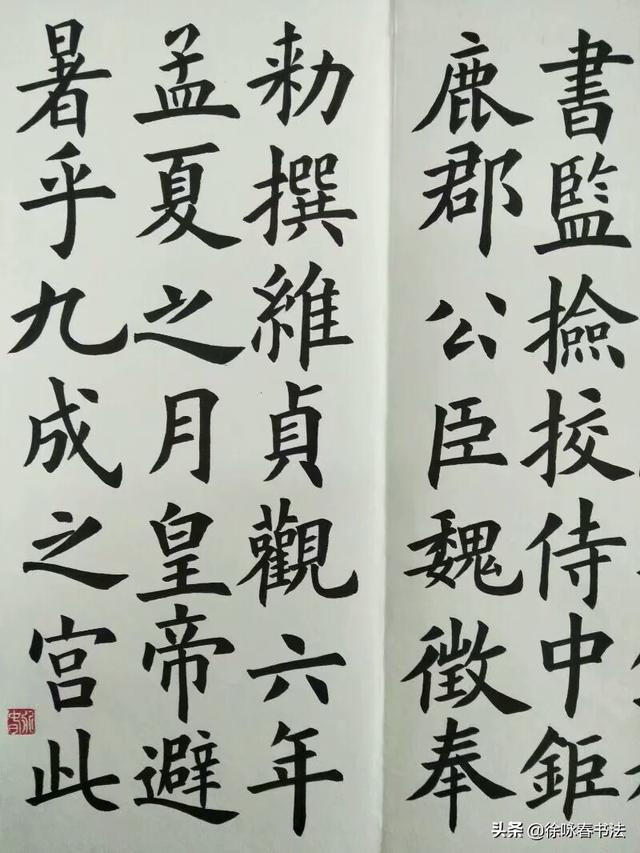 書監撿挍侍中鉅
鹿郡公臣魏徵奉
勑撰維貞觀六年
孟夏之月皇帝避
暑乎九成之宮此
头条 @徐咏春书法